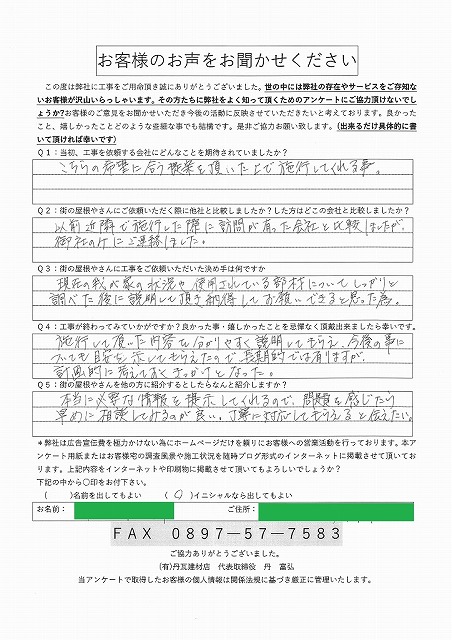 お客様のお声をお聞かせください
この度は弊社に工事をご用命頂き誠にありがとうございました。世の中には弊社の存在やサービスをご存知な
いお客様が沢山いらっしゃいます。その方たちに弊社をよく知って頂くためのアンケートにご協力頂けないでし
ょうか?お客様のご意見をお聞かせいただき今後の活動に反映させていただきたいと考えております。良かった
こと、嬉しかったことどのような些細な事でも結構です。是非ご協力お願い致します。(出来るだけ具体的に書
いて頂ければ幸いです)
Q1:当初、工事を依頼する会社にどんなことを期待されていましたか?
こちらの希望に合う提案を頂いた上で施行してくれる事。
Q2:街の屋根やさんにご依頼いただく際に他社と比較しましたか?した方はどこの会社と比較しましたか?
以前近隣で施行した際に訪問が有った会社と比較しましたが、
御社のみにご連絡しました。
Q3:街の屋根やさんに工事をご依頼いただいた決め手は何ですか
現在の我が家の状況や使用されている部材についてしっかりと
調べた後に説明して頂き納得してお願いできると思った為。
Q4:工事が終わってみていかがですか?良かった事・嬉しかったことを忌憚なく頂戴出来ましたら幸いです。
施行して頂いた内容を分かりやすく説明してもらえ、今後の事に
ついても目安を示してもらえたので長期的では有りますが、
計画的に考えておくきっかけとなった。
Q5:街の屋根やさんを他の方に紹介するとしたらなんと紹介しますか?
本当に必要な情報を提示してくれるので、問題を感じたら
早めに相談してみるのが良い。丁寧に対応してもらえると伝えたい。
*弊社は広告宣伝費を極力かけない為にホームページだけを頼りにお客様への営業活動を行っております。本ア
ンケート用紙またはお客様宅の調査風景や施工状況を随時ブログ形式のインターネットに掲載させて頂いてお
ります。上記内容をインターネットや印刷物に掲載させて頂いてもよろしいでしょうか?
下記の中から〇印をお付け下さい。
( )名前を出してもよい (〇)イニシャルなら出してもよい
お名前: ご住所:
FAX 0897-57-7583
ご協力ありがとうございました。
(有)丹瓦建材店 代表取締役 丹 富弘
当アンケートで取得したお客様の個人情報は関係法規に基づき厳正に管理いたします。